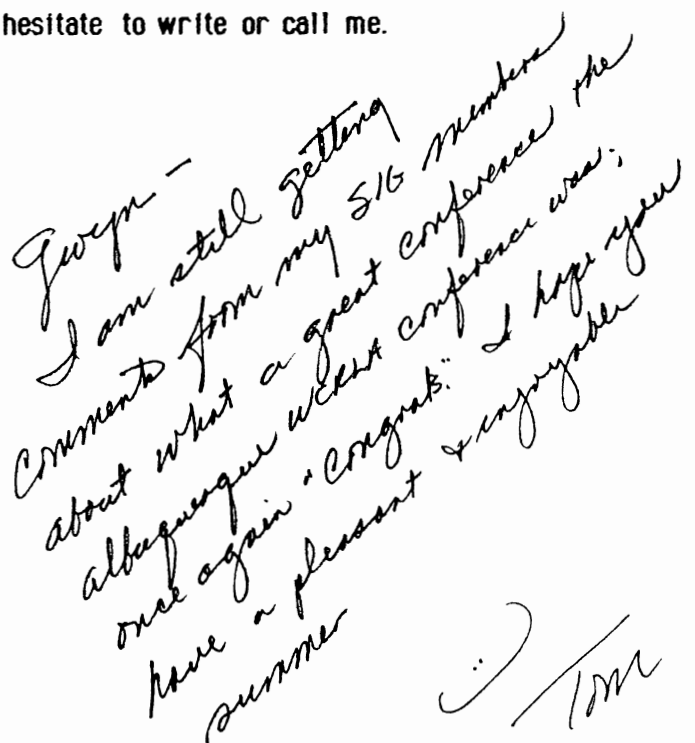 hesitate to write or call me.
Gwyn -
I am still getting
comments from my SIG members
about what a great conference the
albuquerque WCRLA conference was;
once again "Congrats." I hope you
have a pleasant & enjoyable
summer
Tom